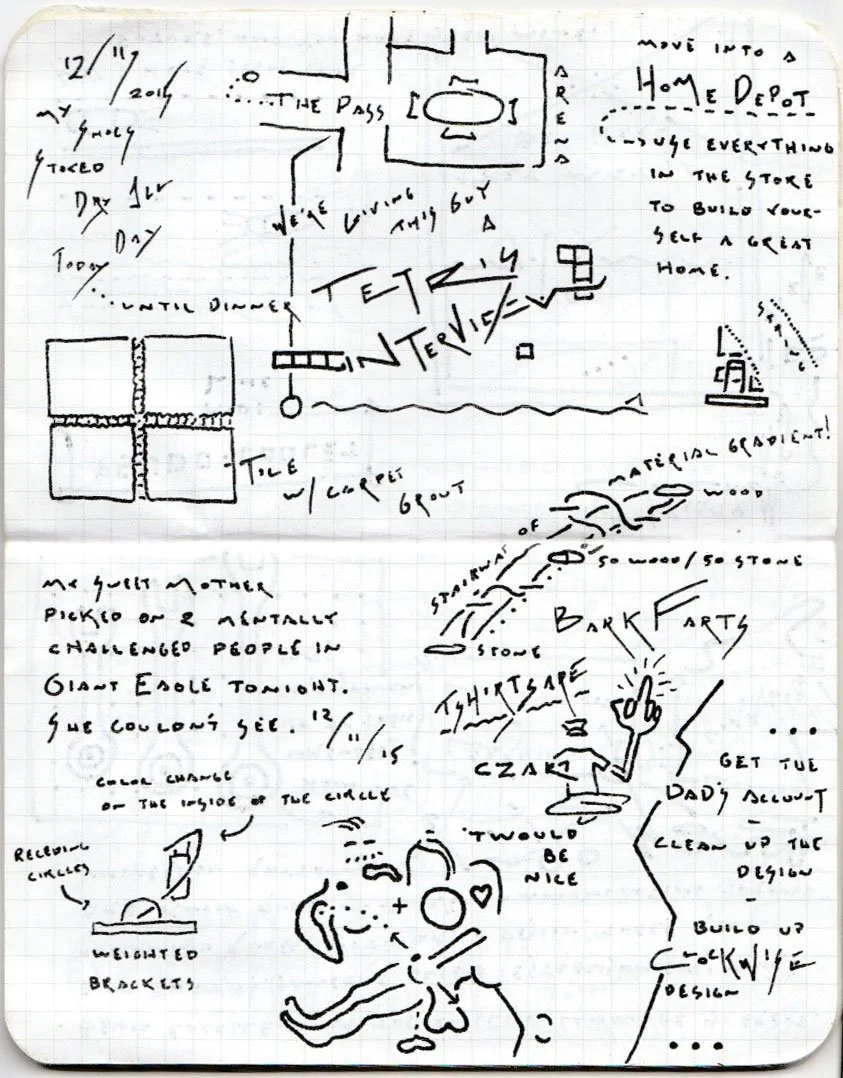 12/11/2015
MY
SMOLY
STOKED
DAY 1ST
DAY
TODAY
UNTIL DINNER
THE PASS
ARENA
MOVE INTO A
HOME DEPOT
USE EVERYTHING
IN THE STORE
TO BUILD YOUR-
SELF A GREAT
HOME.
WE'RE GIVING
THIS GUY
A
TETRIS
INTERVIEW
TILE
W/ CARPET
GROUT
STAIRWAY OF MATERIAL GRADIENT!
WOOD
50 WOOD/50 STONE
STONE
MY SWEET MOTHER
PICKED ON 2 MENTALLY
CHALLENGED PEOPLE IN
GIANT EAGLE TONIGHT.
SHE COULDN'T SEE. 12/11/15
BARK FARTS
TSHIRTSAPE
CZAR
COLOR CHANGE
ON THE INSIDE OF THE CIRCLE
RECEDING
CIRCLES
WEIGHTED
BRACKETS
'TWOULD
BE
NICE
...
GET THE
DAD'S ACCOUNT
-
CLEAN UP THE
DESIGN
-
BUILD UP
CLOCKWISE
DESIGN
...